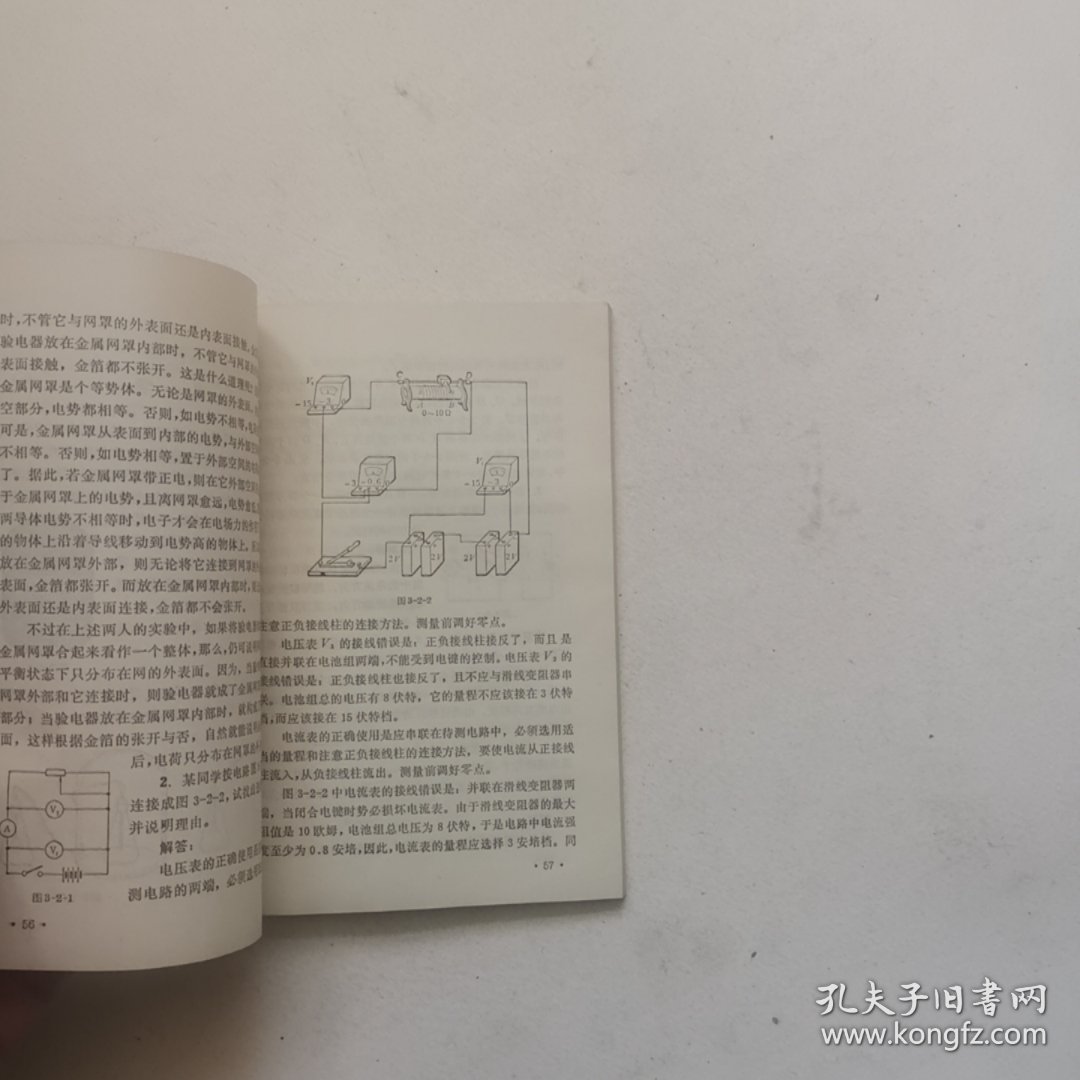 时,不管它与网罩的外表面还是内表面接触,
验电器放在金属网罩内部时，不管它与网罩
表面接触，金箔都不张开。这是什么道理呢?
金属网罩是个等势体。无论是网罩的外表面、
空部分,电势都相等。否则,如电势不相等,
可是,金属网罩从表面到内部的电势,与外部空间
不相等。否则，如电势相等,置于外部空间的
了。据此,若金属网罩带正电,则在它外部空间
于金属网罩上的电势,且离网罩愈远,电势愈
两导体电势不相等时,电子才会在电场力的作用
的物体上沿着导线移动到电势高的物体上。
放在金属网罩外部，则无论将它连接到网罩的
表面,金箔都张开。而放在金属网罩内部时,
外表面还是内表面连接,金箔都不会张开。
不过在上述两人的实验中，如果将验电器
金属网罩合起来看作一个整体,那么,仍可说明
平衡状态下只分布在网的外表面。因为，当
网罩外部和它连接时，则验电器就成了金属网罩
部分；当验电器放在金属网罩内部时，就构成
面，这样根据金箔的张开与否，自然就能说明
后,电荷只分布在网罩的
2. 某同学按电路图
连接成图3-2-2,试找出
并说明理由。
解答:
电压表的正确使用
测电路的两端，必须选用
A
V₂
V₁
图3-2-1
· 56 ·
V₂
-15 -3 0
C
D
A
B
0—10Ω
-3 -0.6 0
V₁
-15 -3 0
2V
2V
2V
2V
图3-2-2
注意正负接线柱的连接方法。测量前调好零点。
电压表V₁的接线错误是：正负接线柱接反了，而且是
直接并联在电池组两端,不能受到电键的控制。电压表V₂的
接线错误是：正负接线柱也接反了，且不应与滑线变阻器串
联。电池组总的电压有8伏特，它的量程不应该接在3伏特
档,而应该接在15伏特档。
电流表的正确使用是应串联在待测电路中，必须选用适
当的量程和注意正负接线柱的连接方法，要使电流从正接线
柱流入,从负接线柱流出。测量前调好零点。
图3-2-2中电流表的接线错误是：并联在滑线变阻器两
端，当闭合电键时势必损坏电流表。由于滑线变阻器的最大
阻值是10欧姆，电池组总电压为8伏特，于是电路中电流强
度至少为0.8安培,因此,电流表的量程应选择3安培档。同
· 57 ·
孔夫子旧書网
www.kongfz.com